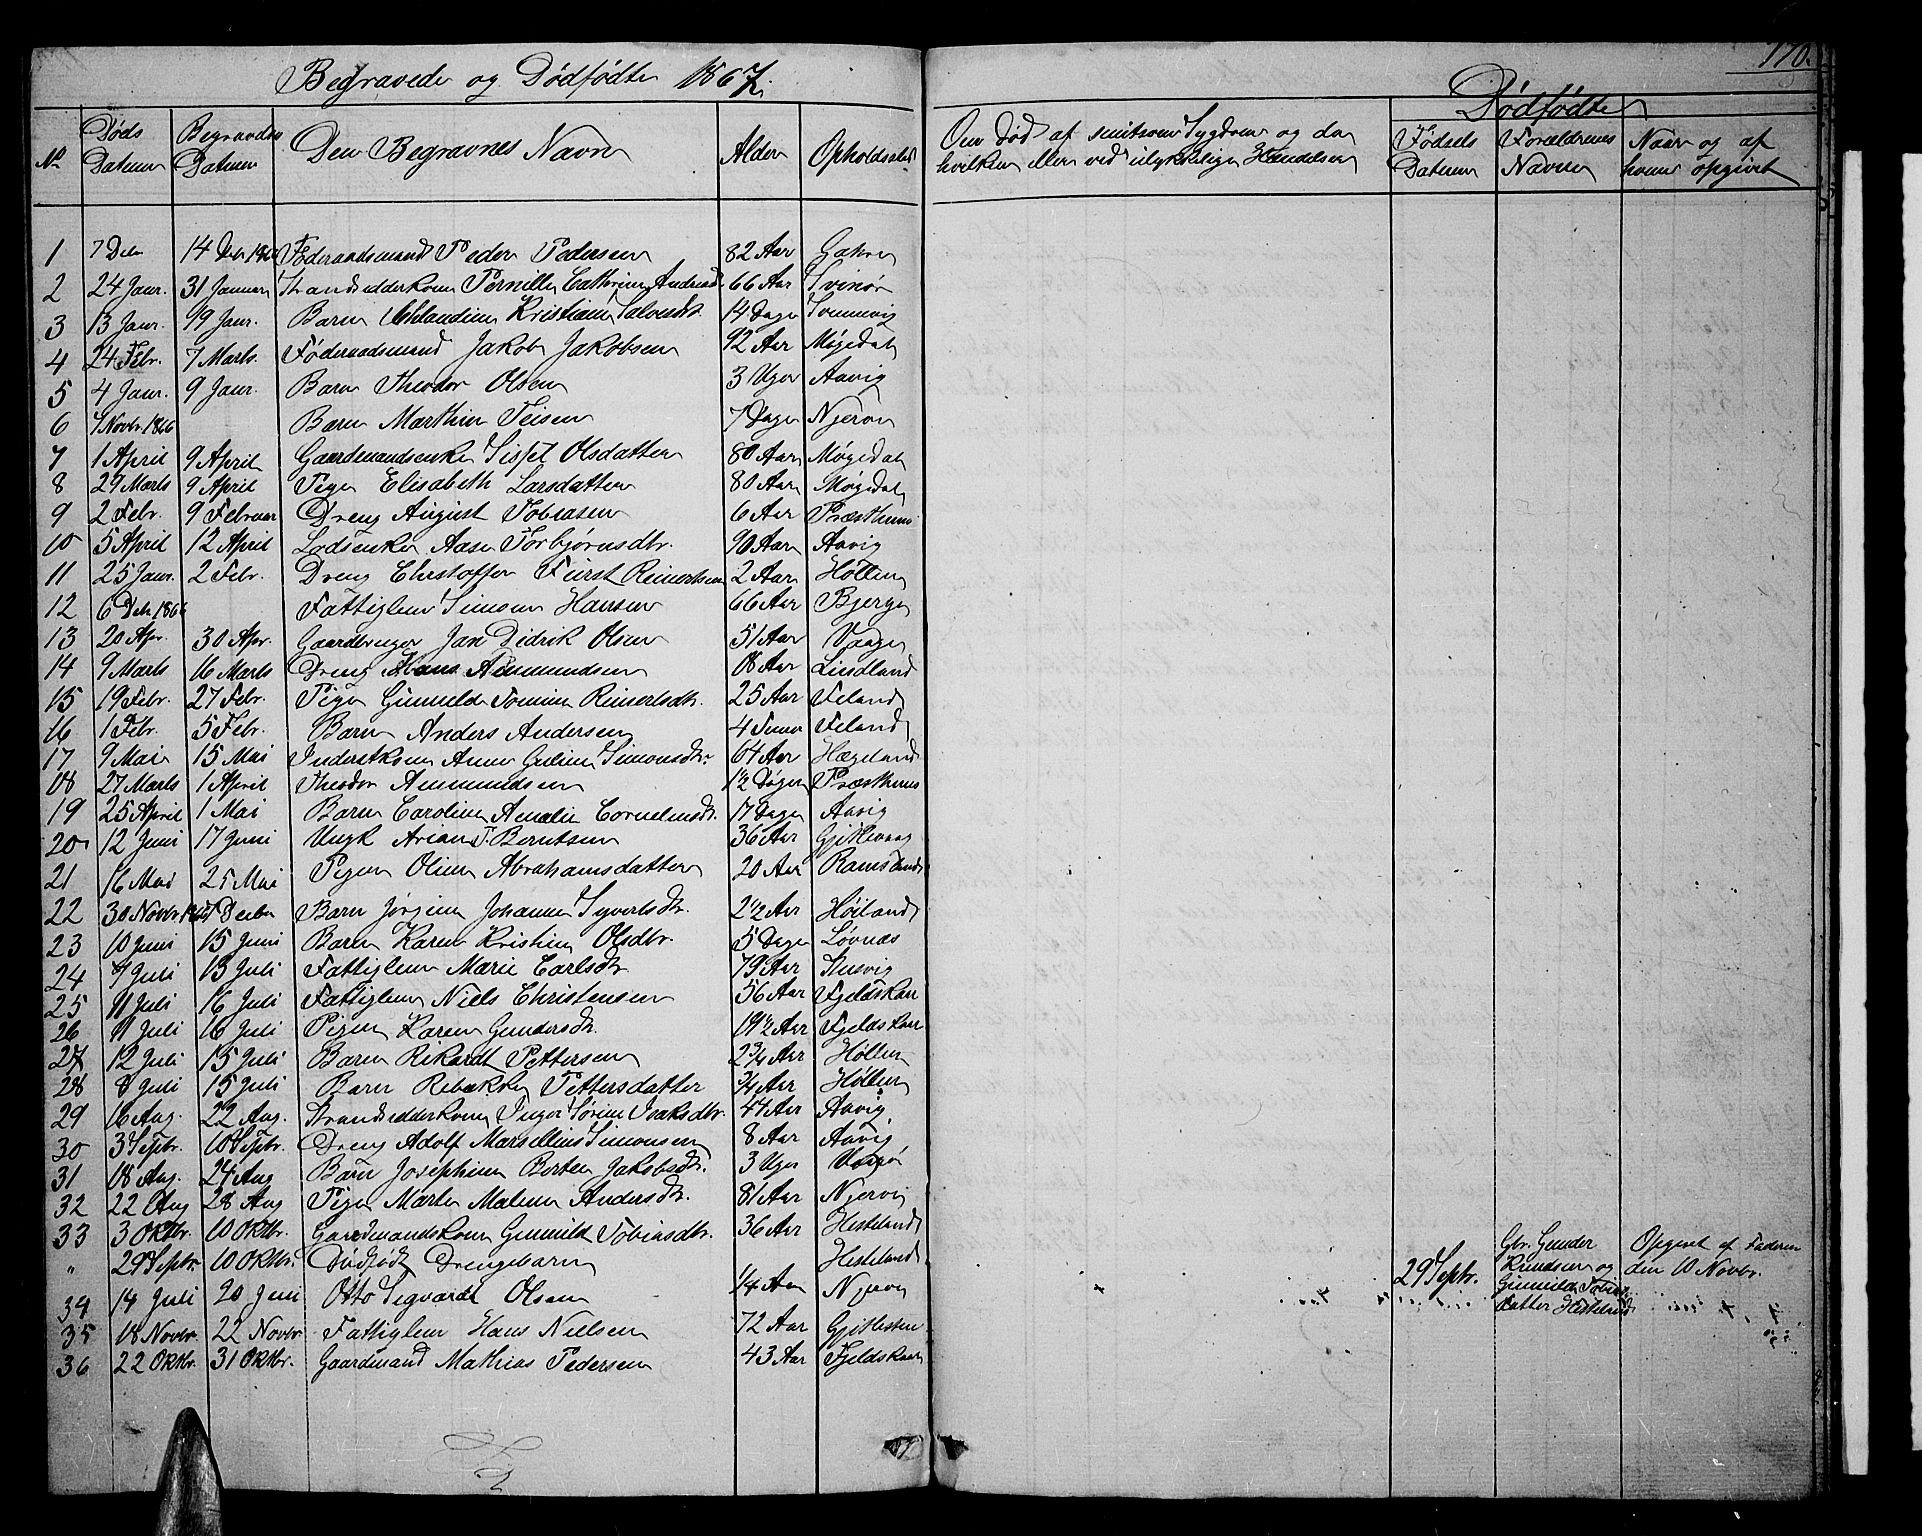 170.
Begravede og Dødfødte 1867.
Dødfødte
No
Døds Datum
Begravdes Datum
Den Begravnes Navn
Alder
Opholdssted
Om Død af smitsom Sygdom og da hvilken eller ved ulykkelige Hændelser
Fødsels Datum
Forældrenes Navne
Naar og af hvem opgivet
1 7 Decb 14 Decb 1866 Føderaadsmand Peder Pedersen 82 Aar
2 24 Janr. 31 Januar Strandsidderkone Pernille Cathrine Andreasd. 66 Aar Svinør
3 13 Janr. 19 Janr. Barn Kristiane Salvesdtr. 14 Dage Svennevig
4 24 Febr. 7 Marts. Føderaadsmand Jakob Jakobsen 92 Aar Møgedal
5 4 Janr. 9 Janr. Barn Theodor Olsen 3 Uger Aavig
6 7 Novbr. 1866 Barn Marthin Teisen 7 Dage Njerve
7 1 April 9 April Gaardmandsenke Sisset Olsdatter 80 Aar Møgedal
8 29 Marts 9 April Pige Elisabeth Larsdatter 80 Aar Møgedal
9 2 Febr. 9 Februar Dreng August Tobiasen 6 Aar Præsthuus
10 5 April 12 April Lodsenke Aase Torbjørnsdtr. 90 Aar Aavig
11 25 Janr. 2 Febr. Dreng Christoffer Fürst Reinertsen 2 Aar Høllen
12 6 Decb 1866 Fattiglem Simon Hansen 66 Aar Bjerge
13 20 Apr. 30 Apr. Gaardbruger Jan Didrik Olsen 51 Aar Vaage
14 9 Marts 16 Marts Dreng Hans Ammundsen 18 Aar Lindland
15 19 Febr. 27 Febr. Pige Gunnild Tomine Reinertsdtr. 25 Aar Feland
16 1 Febr. 5 Febr. Barn Anders Andersen 4 Timer Feland
17 9 Mai 15 Mai Inderstkone Anne Guline Simonsdtr. 64 Aar Hægeland
18 27 Marts 1 April Theodor Ammundsen 1½ Døgn Præsthuus
19 25 April 1 Mai Barn Caroline Amalie Corneliusdtr. 17 Dage Aavig
20 12 Juni 17 Juni Ungk Arian T. Berntsen 36 Aar Gjitlevaag
21 16 Mai 25 Mai Pigen Oline Abrahamsdatter 20 Aar Ramsland
22 30 Novbr. 1866 7 Decbr Barn Jørgine Johanne Syvertsdtr. 2½ Aar Høiland
23 10 Juni 15 Juni Barn Karen Kristine Olsdtr. 5 Dage Løvnæs
24 7 Juli 13 Juli Fattiglem Marie Carlsdtr. 79 Aar
25 11 Juli 16 Juli Fattiglem Niels Christensen 56 Aar Fjeldskaar
26 11 Juli 16 Juli Pigen Karen Gundersdtr. 19½ Aar Fjeldskaar
27 12 Juli 15 Juli Barn Rikardt Pettersen 2¾ Aar Høllen
28 8 Juli 15 Juli Barn Rebækka Pettersdatter ¾ Aar Høllen
29 16 Aug. 22 Aug. Strandsidderkone Inger Sørine Isaksdtr. 44 Aar Aavig
30 3 Septbr. 10 Septbr. Dreng Adolf Marsellius Simonsen 8 Aar Aavig
31 18 Aug. 24 Aug Barn Josephine Bertine Jakobsdtr. 3 Uger
32 22 Aug 28 Aug Pige Marte Malene Andersdtr. 81 Aar Njerve
33 3 Oktbr. 10 Oktbr. Gaardmandskone Gunnild Tobiasdtr. 36 Aar Hesteland
" 29 Septbr. 10 Oktbr. Dødfødt Drengebarn Hesteland
29 Septr. Gbr. Gunder Knudsen og Gunnild Tobiasdatter Hesteland
Opgivet af Faderen den 10 Novbr.
34 14 Juli 20 Juni Otto Sigvardt Olsen ¼ Aar Njerve
35 18 Novbr. 22 Novbr Fattiglem Hans Nielsen 72 Aar
36 22 Oktbr. 31 Oktbr. Gaardmand Mathias Pedersen 43 Aar Fjeldskaar